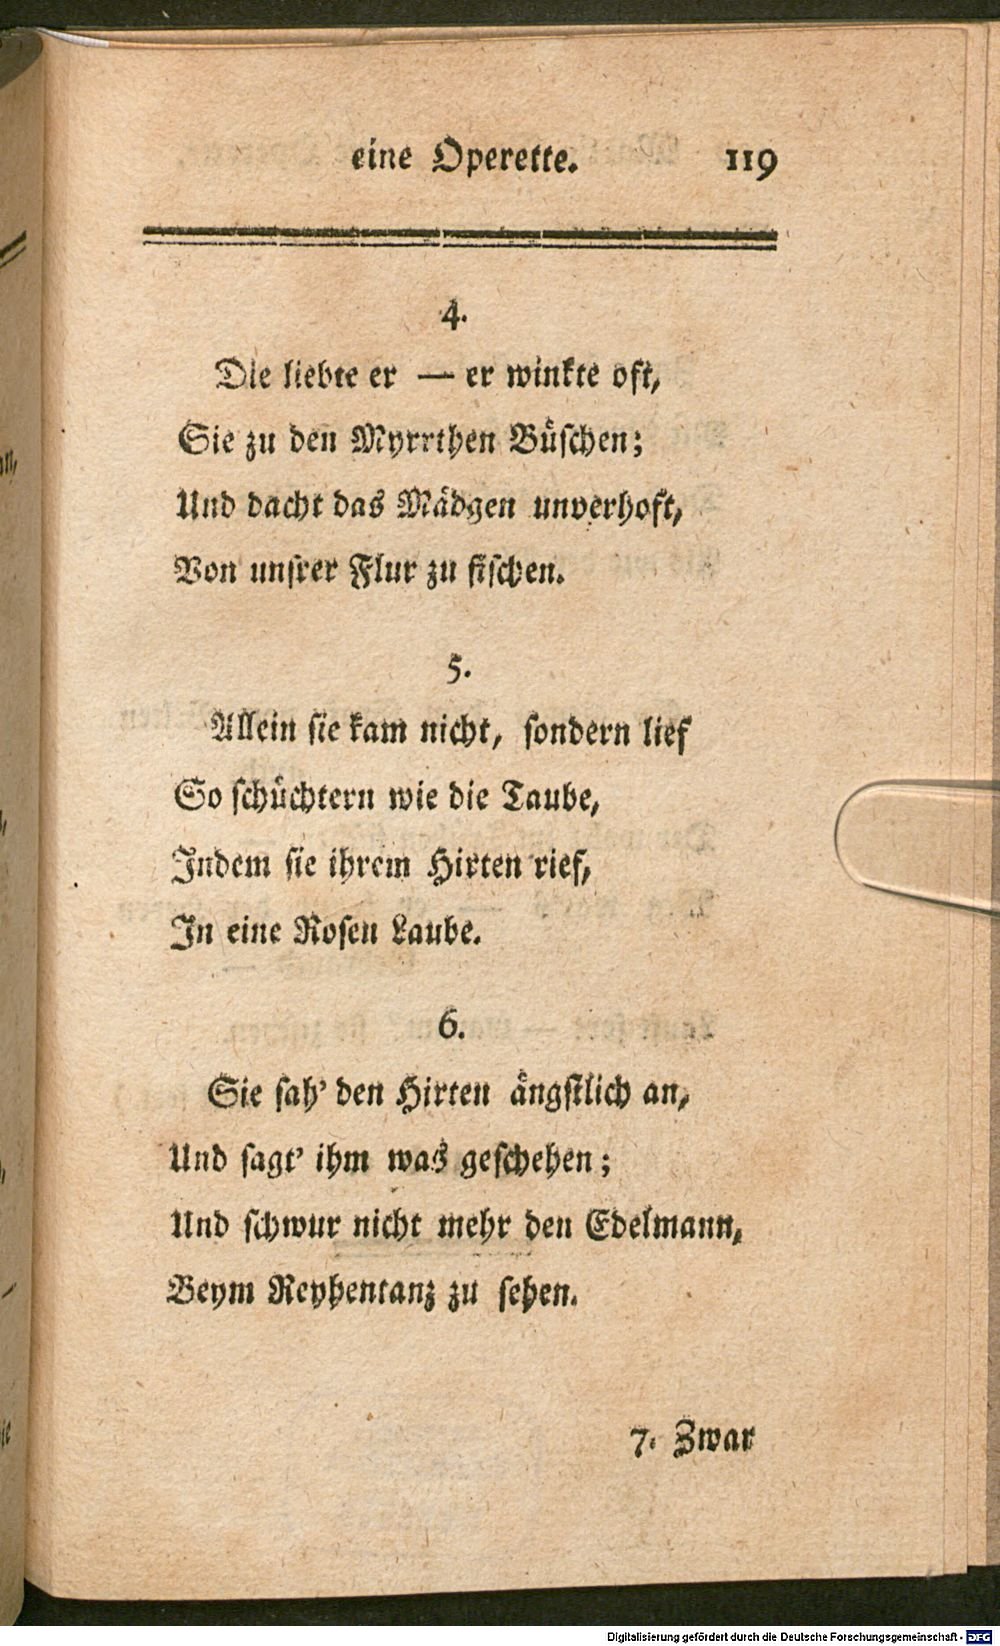 eine Operette. 119
4.
Die liebte er — er winkte oft,
Sie zu den Myrrthen Büschen;
Und dacht das Mädgen unverhoft,
Von unsrer Flur zu fischen.
5.
Allein sie kam nicht, sondern lief
So schüchtern wie die Taube,
Indem sie ihrem Hirten rief,
In eine Rosen Laube.
6.
Sie sah' den Hirten ängstlich an,
Und sagt' ihm was geschehen;
Und schwur nicht mehr den Edelmann,
Beym Reyhentanz zu sehen.
7. Zwar
Digitalisierung gefördert durch die Deutsche Forschungsgemeinschaft - DFG